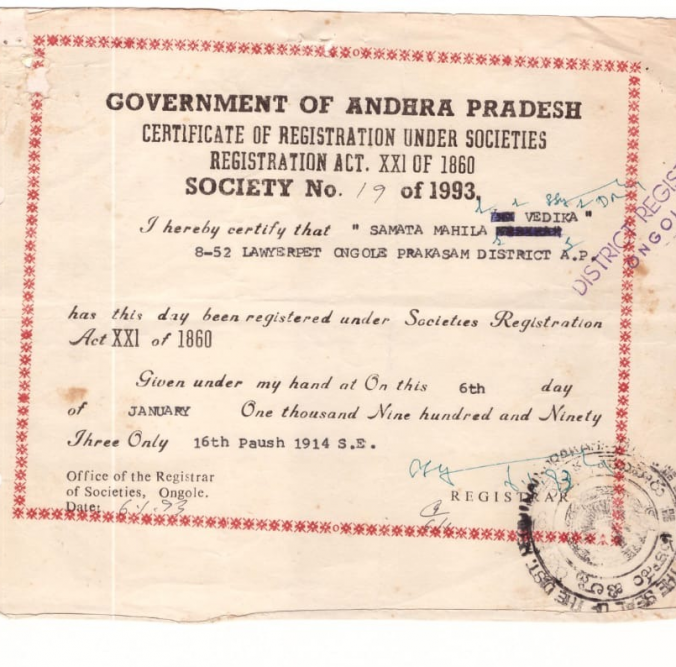 GOVERNMENT OF ANDHRA PRADESH
CERTIFICATE OF REGISTRATION UNDER SOCIETIES
REGISTRATION ACT. XXI OF 1860
SOCIETY No. 19 of 1993,
VEDIKA "
I hereby certify that " SAMATA MAHILA
8-52 LAWYERPET ONGOLE PRAKASAM DISTRICT A.P.
DISTRICT REGIS
ONGOL
has this day been registered under Societies Registration
Act XXI of 1860
Given under my hand at On this 6th day
of JANUARY One thousand Nine hundred and Ninety
Three Only 16th Paush 1914 S.E.
Office of the Registrar
of Societies, Ongole.
REGISTRAR
Date: 6.1.93
THE SEAL OF THE DIST.